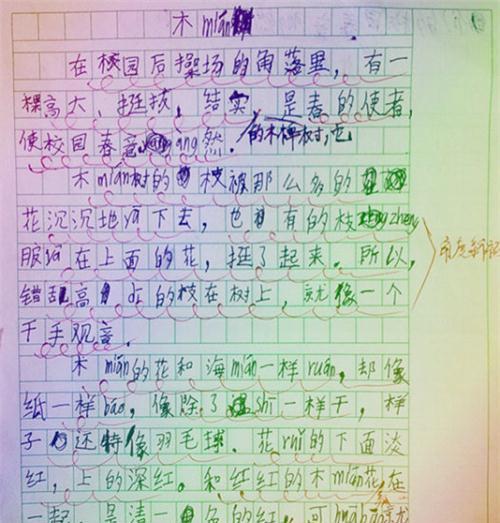 木mián
在校园后操场的角落里，有一
棵高大、挺拔、结实，是春的使者，
使校园春意 àng然．的木棉树，它
木mián树的 枝被那么多的
花沉沉地 下去，也 有的枝 zhēng
服 在上面的花，挺了起来．所以，
错乱高 的枝在树上，就像一个
千手观音．
木mián的花和海mián一样ruǎn，却像
纸一样báo，像除了 shī一样干，样
子 还特像羽毛球．花ruǐ的下面淡
红，上的深红．和红红的木mián花，在
一起，是清一 色的红，可